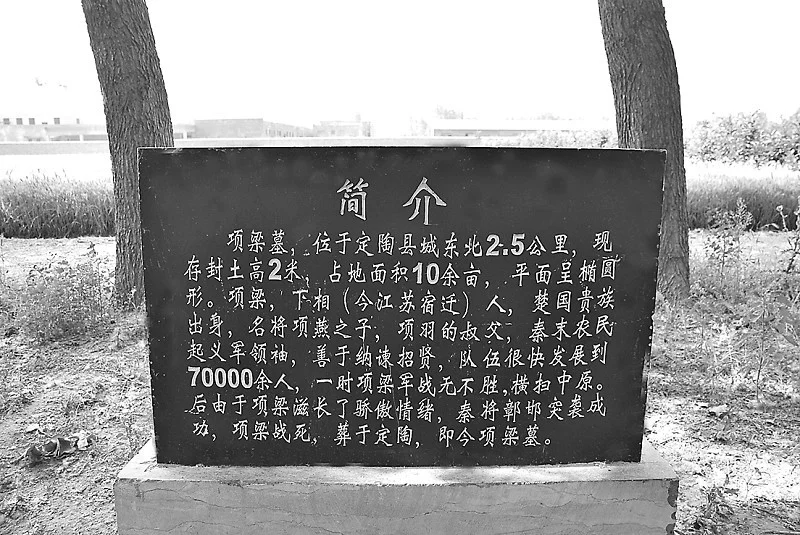 简介
项梁墓，位于定陶县城东北2.5公里，现
存封土高2米，占地面积10余亩，平面呈椭圆
形。项梁，下相（今江苏宿迁）人，楚国贵族
出身，名将项燕之子，项羽的叔父，秦末农民
起义军领袖，善于纳谏招贤，队伍很快发展到
70000余人，一时项梁军战无不胜,横扫中原。
后由于项梁滋长了骄傲情绪，秦将鄣邯突袭成
功，项梁战死，葬于定陶，即今项梁墓。